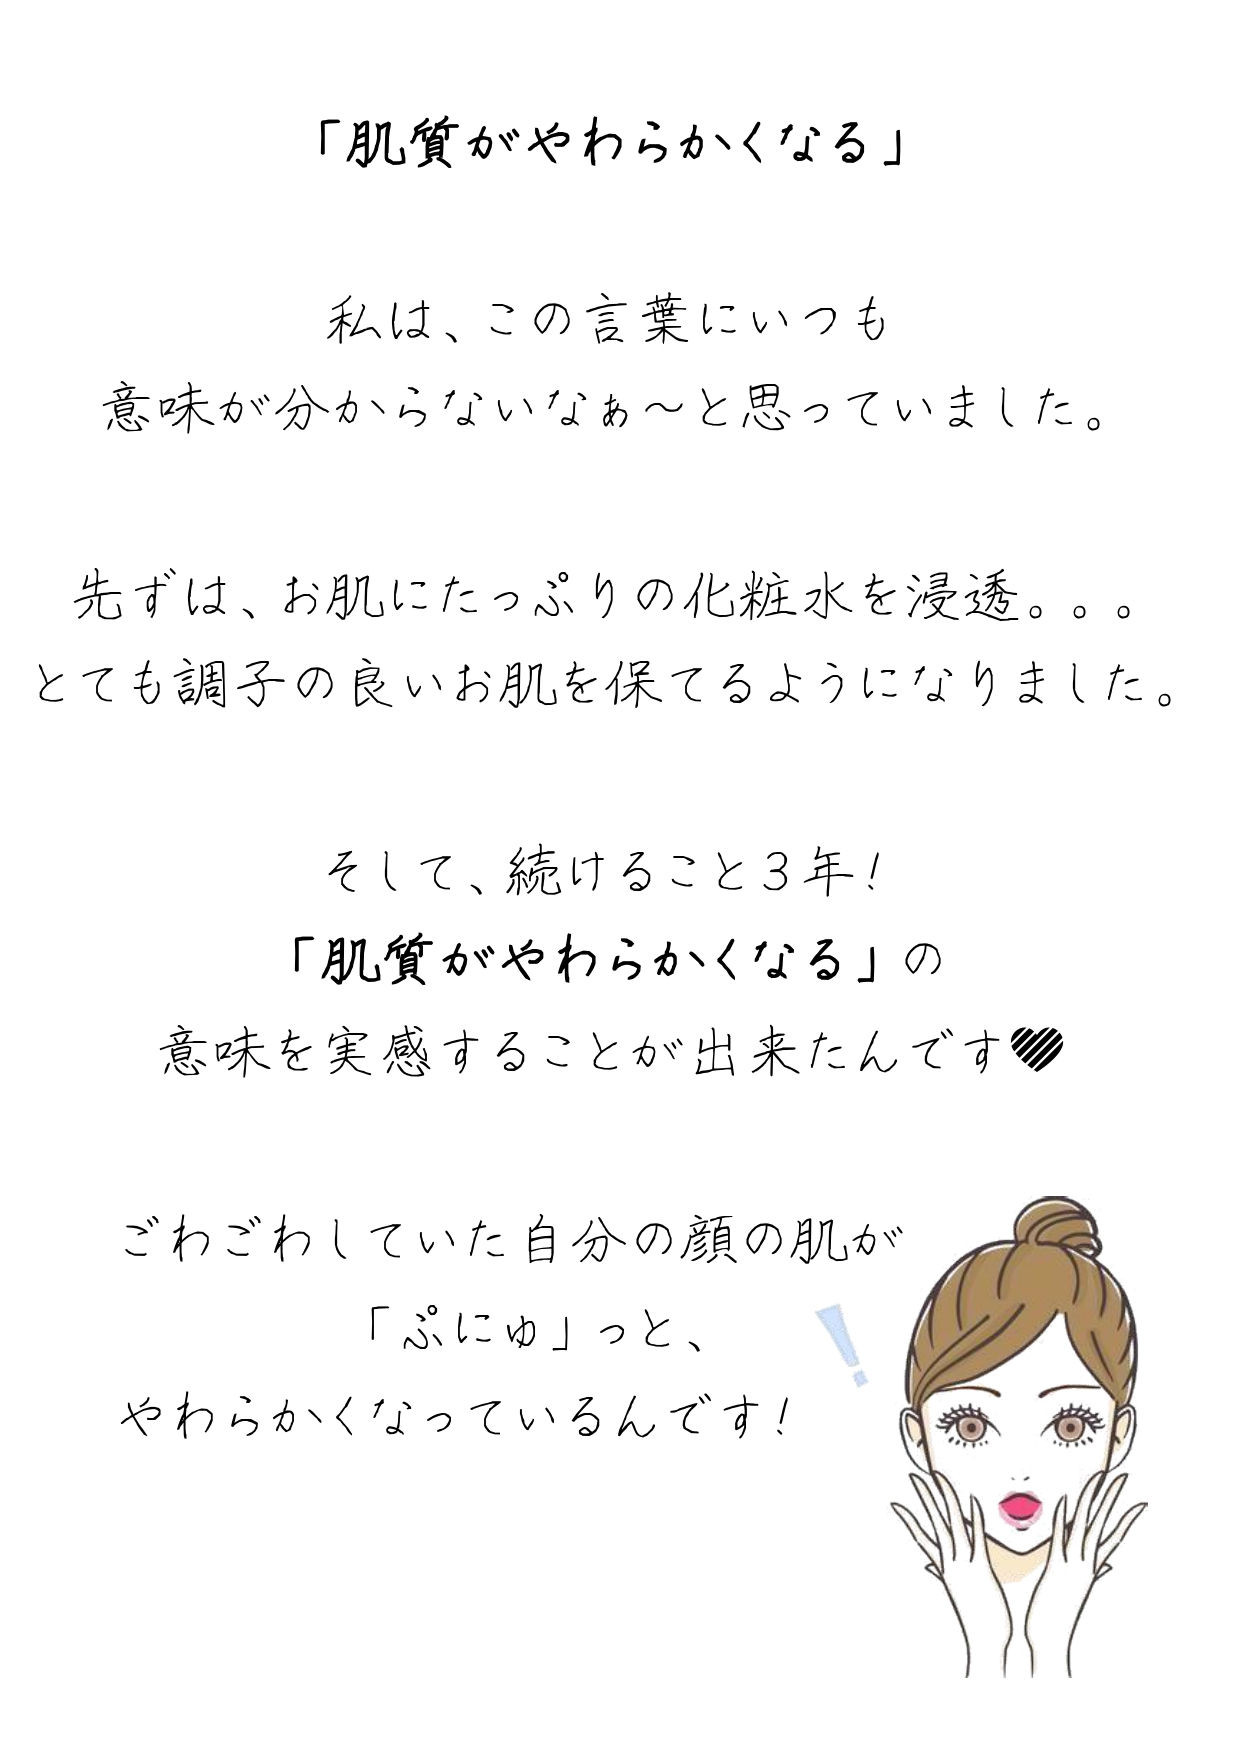 「肌質がやわらかくなる」
私は、この言葉にいつも
意味が分からないなぁ～と思っていました。
先ずは、お肌にたっぷりの化粧水を浸透。。。
とても調子の良いお肌を保てるようになりました。
そして、続けること３年！
「肌質がやわらかくなる」の
意味を実感することが出来たんです♥
ごわごわしていた自分の顔の肌が
「ぷにゅ」っと、
やわらかくなっているんです！
！